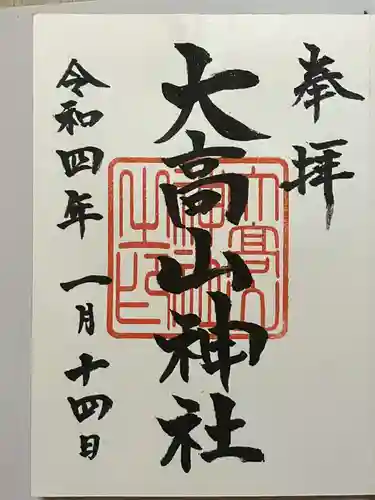 奉拝
大高山神社
令和四年一月十四日